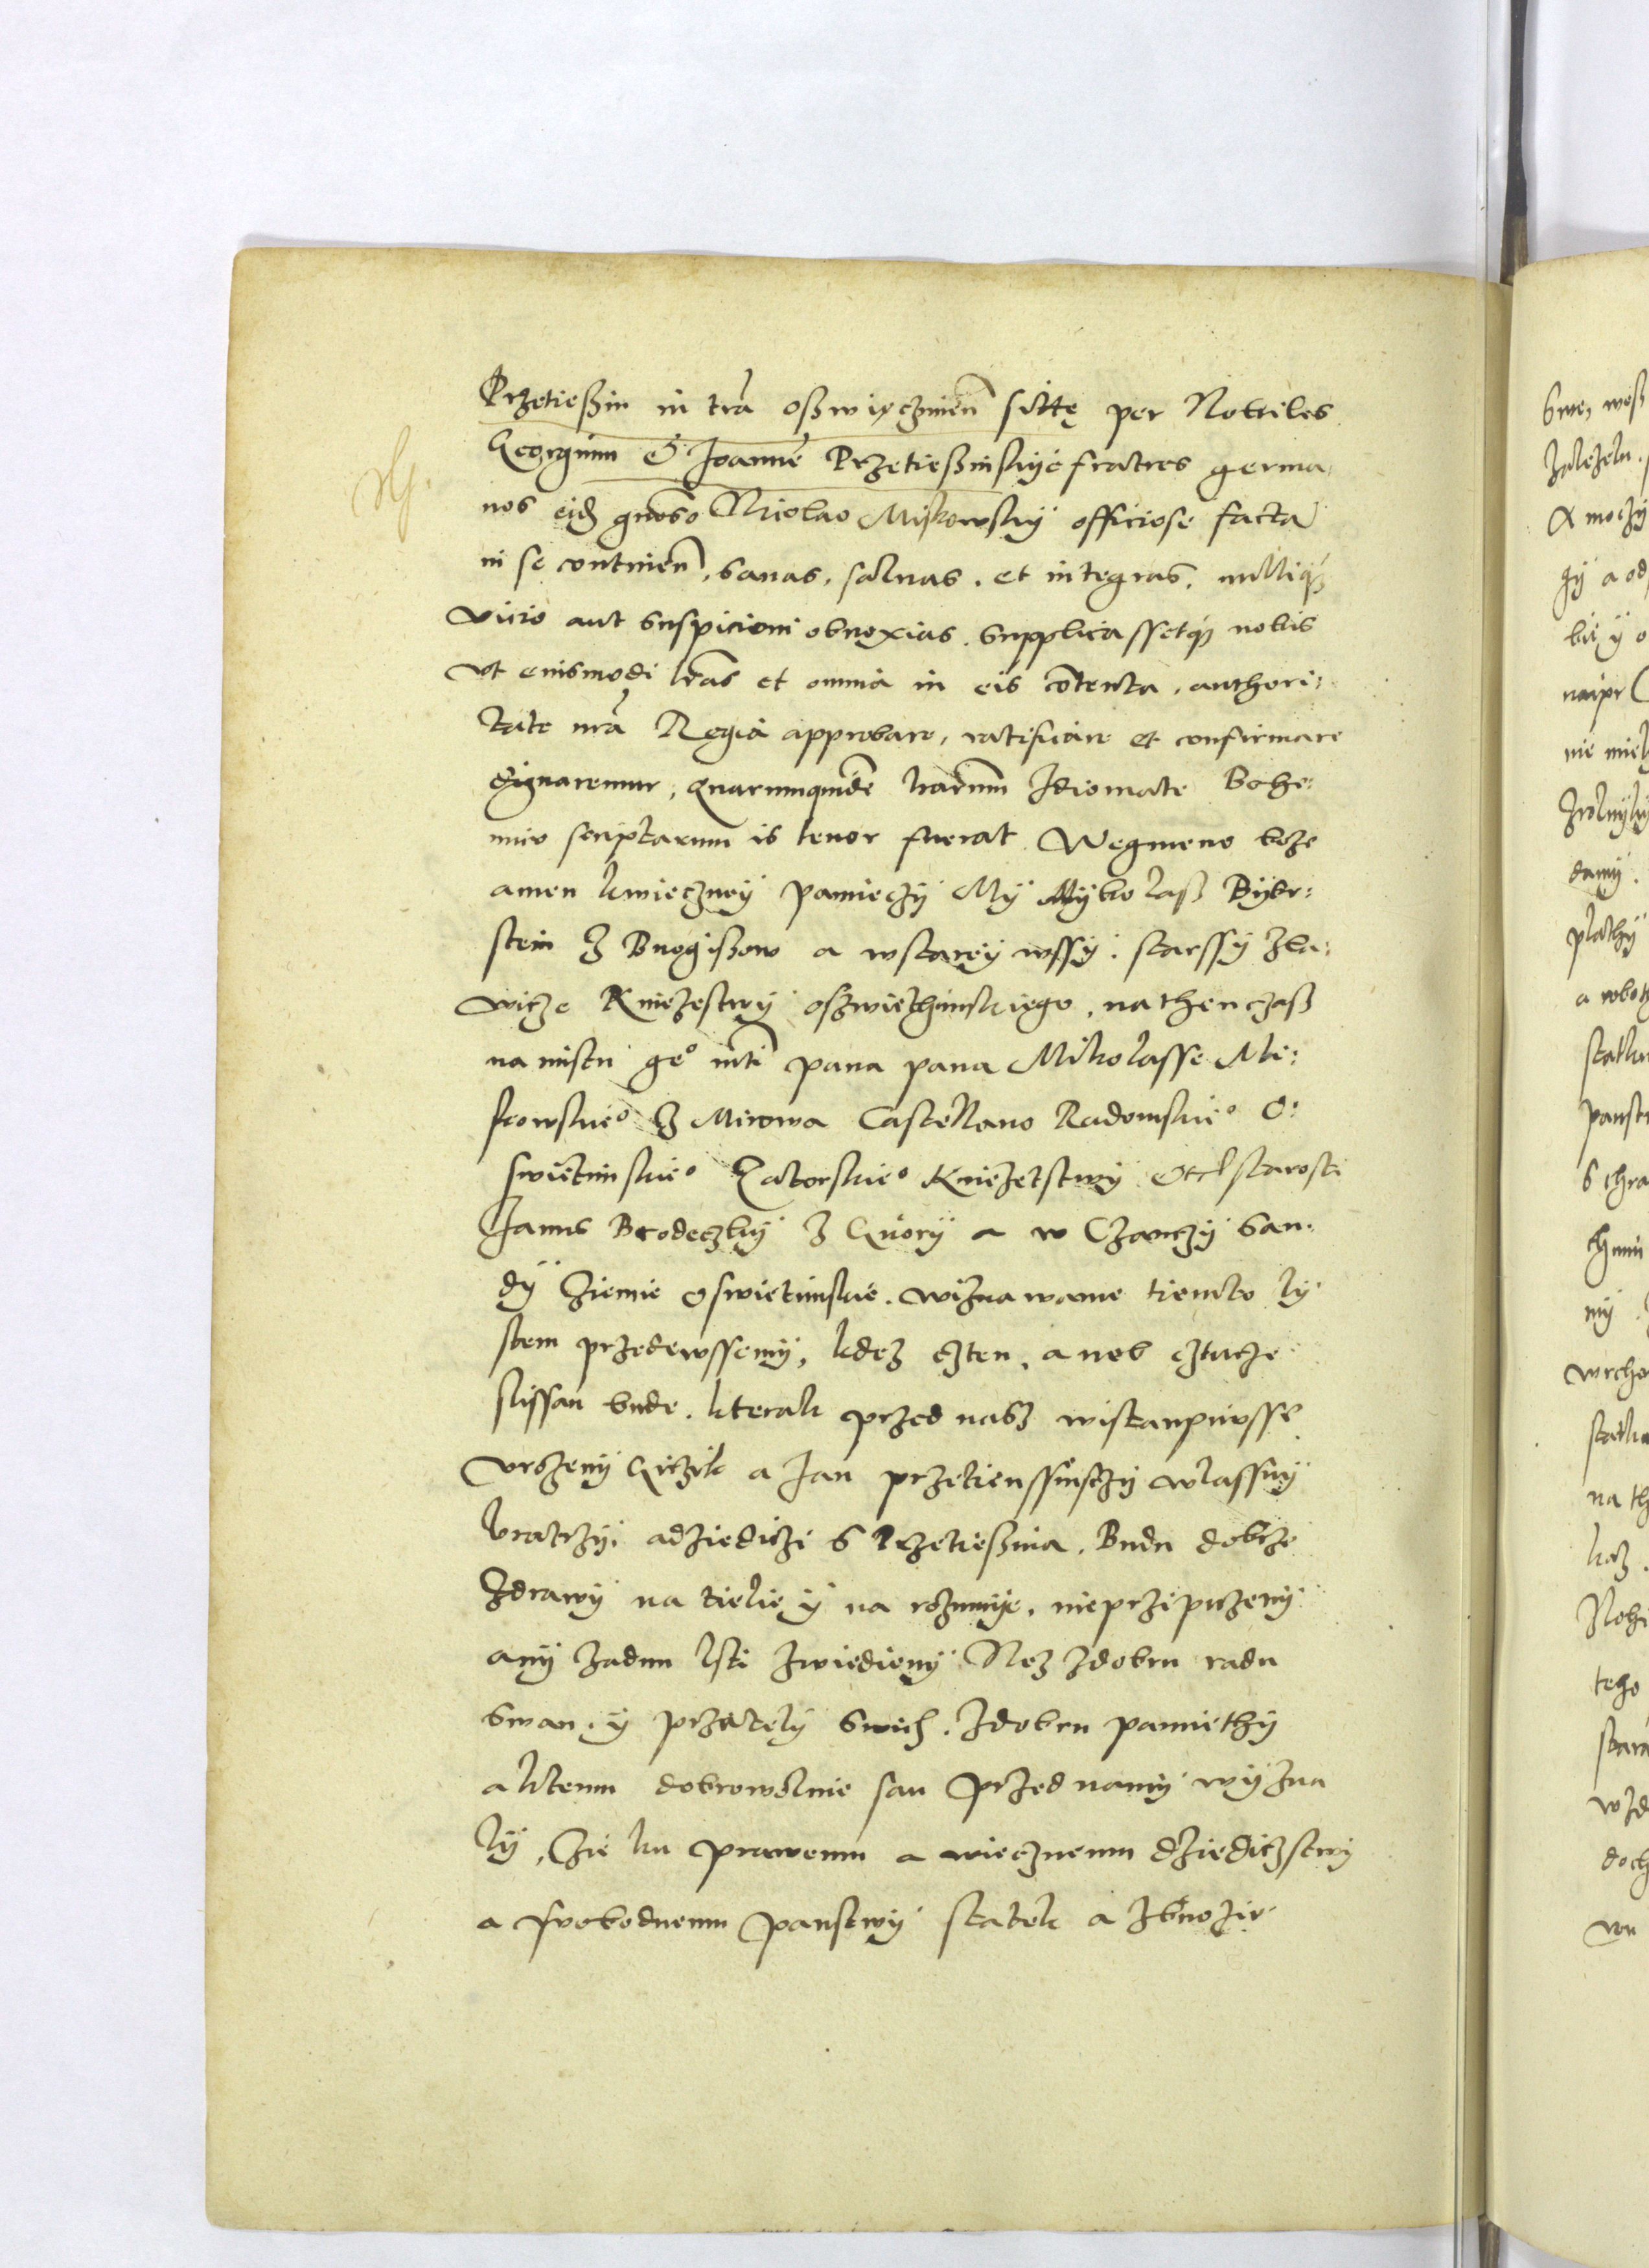 Przetießin in trā oßwięczimeñ sittę per Nobiles
Georgium & Joannē Przetießinskye fratres germa:
nos eidē gnōso Nicolao Myskowsky officiose facta
in se continen̄, sanas, saluas, et integras, nulliq3
vicio aut suspicioni obnoxias. Supplicassetq3 nobis
vt eiusmodi lrās et omnia in eis cōtenta, authori:
tate nrā Regia approbare, ratificare et confirmare
dignaremur, Quarumquidē lrarum Idiomate Bohe:
mico scriptarum is tenor fuerat Wegmeno boze
amen kwieczney pamieczy My Mykolaß Bybr:
stein z Bnogißow a wstarey wssy. starssy zla:
wicze Kniezestwy oßwiethimskiego, nathenczaß
na mistu geº mti pana pana Mikolasse Mi:
skowskieº z Mirowa Castellano Radomskieº O:
swietimskieº Zatorskieº Kniezetstwy Etcꝭ starosti
Janus Brodeczky z Guory a w Czanczy San:
dy Ziemie oswietimskie. wiznawame tiemto ly
stem przedewssemy, kdez czten, a neb cztucze
slissan bude. kterak przed nasz wistanpiwsse
vrozeny Giczik a Jan przetienssinsczy wlassny
bratrzy. adziediczi s Przetießnia. Budu dobrze
zdrawy na tielie y na rozumye, nieprzipuzeny
any zadnu lsti zwiedieny Nez zdobru radu
swau. y przately swich. zdobru pamiethy
a ktemu dobrowolnie sau przed namy wyzna
ly, Zie ku prawemu a wiecznemu dziediczstwy
a swobodnemu panstwy statek a zbuozie